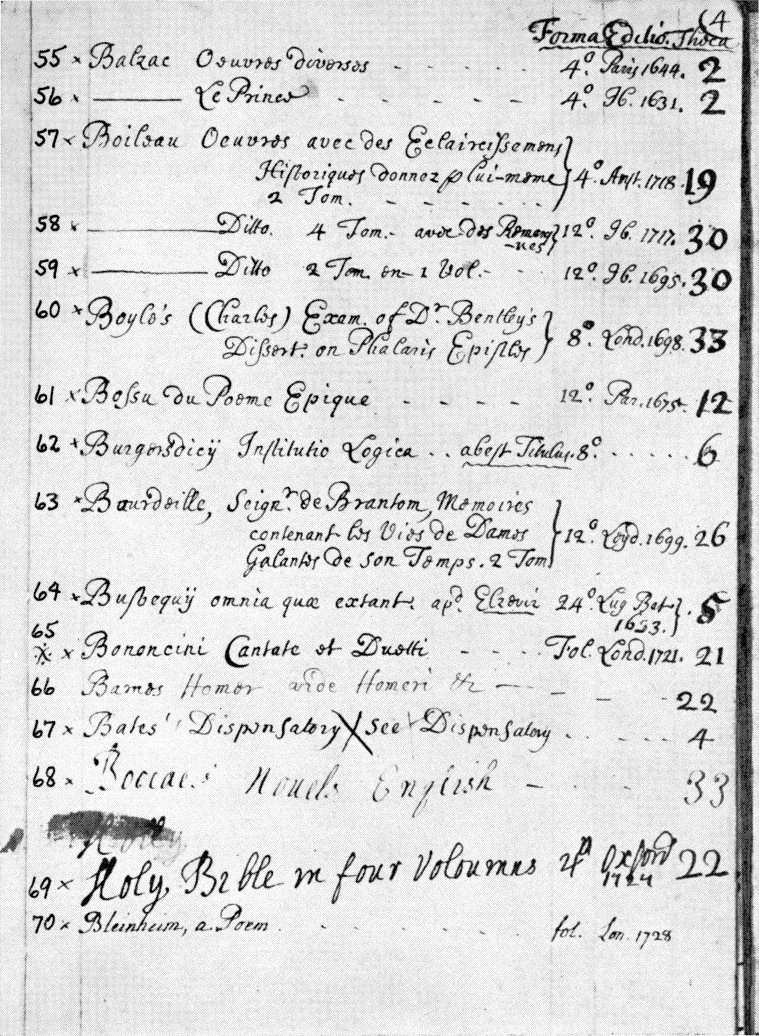 (4
Forma Editio. Theca
55 × Balzac Oeuvres diverses - - - - 4.° Paris 1644. 2
56 × ——— Le Prince - - - - - 4.° Ib. 1631. 2
57 × Boileau Oeuvres avec des Eclaircissemens
Historiques donnez p lui-meme 4.° Amst. 1718. 19
2 Tom. - - - - -
58 × ——— Ditto. 4 Tom. - avec des Remarq 12.° Ib. 1717. 30
-ues
59 × ——— Ditto 2 Tom. en 1 Vol. - - - 12.° Ib. 1695. 30
60 × Boyle's (Charles) Exam. of Dr. Bentley's
Dissert. on Phalaris Epistles 8.° Lond. 1698. 33
61 × Bossu du Poeme Epique - - - - - 12.° Par. 1675. 12
62 × Burgersdicij Institutio Logica . . abest Titulus. 8.° - - - - - 6
63 × Bourdeille, Seignr. de Brantom, Memoires
contenant les Vies de Dames 12.° Leyd. 1699. 26
Galantes de son Temps. 2 Tom
64 × Busbequij omnia quæ extant. apd. Elzevir 24.° Lug Bat . 5
1633.
65
× × Bononcini Cantate et Duetti - - - - Fol. Lond. 1721. 21
66 Barnes Homer vide Homeri &c — - - - 22
67 × Bates' Dispensatory X see Dispensatory . - - - - 4
68 × Boccac.s Novels English - - - - 33
Holy
69 × Holy Bible in four Voloumns 4 Oxford 22
1724
70 × Bleinheim, a Poem . - - - - - fol. Lon. 1728